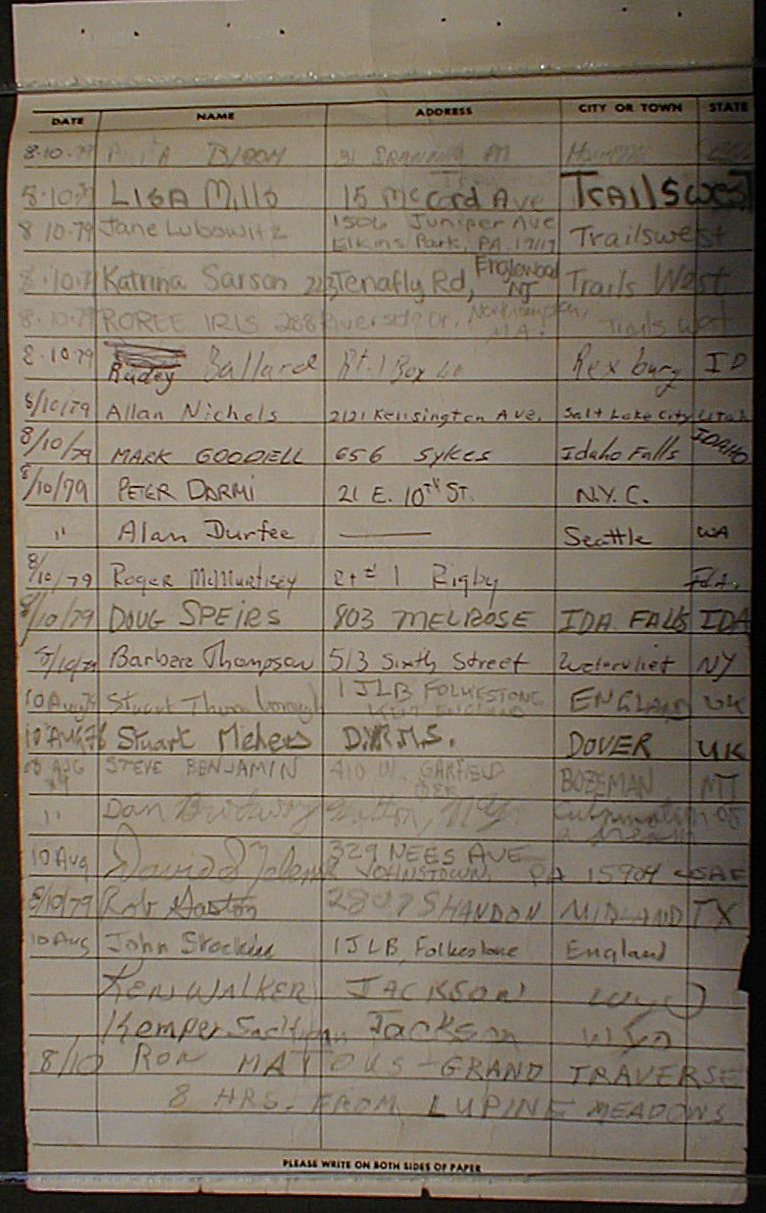 DATE NAME ADDRESS CITY OR TOWN STATE
8-10-79 Anita Bloom 91
8-10-79 LISA Mills 15 McCord Ave TRAILSWEST
8 10-79 Jane Lubowitz 1506 Juniper Ave Elkins Park, PA. 19117 Trailswest
8-10-79 Katrina Sarson 223 Tenafly Rd, Englewood NJ Trails West
8-10-79 ROREE IRIS 288 Riverside Dr. Northampton, MA. Trails West
8-10 79 Rudey Ballard Rt. 1 Box 60 Rexburg ID
8/10/79 Allan Nichols 2121 Kensington Ave, Salt Lake City Utah
8/10/79 MARK GOODELL 656 Sykes Idaho Falls IDAHO
8/10/79 PETER DARMI 21 E. 10TH ST. N.Y.C.
" Alan Durfee — Seattle WA
8/10/79 Roger McMurtrey 1 Rigby IDA.
8/10/79 DOUG SPEIRS 803 MELROSE IDA FALLS IDA
8/10/79 Barbara Thompson 513 Sixth Street Watervliet NY
10 Aug 79 Stuart Thornborough 1 JLB FOLKESTONE KENT ENGLAND ENGLAND UK
10 AUG 79 Stuart Mehers DOVER UK
AUG STEVE BENJAMIN 410 W. GARFIELD BOZEMAN MT
" Dan Culmination of a dream
10 Aug David 329 NEES AVE JOHNSTOWN, PA 15904 USAF
8/10/79 Rob Gaston 2807 SHANDON MIDLAND TX
10 Aug John 1 JLB Folkestone England
KEN WALKER JACKSON WYO
Kemper Jackson Wyo
8/10 RON MATOUS - GRAND TRAVERSE
8 HRS. FROM LUPINE MEADOWS
PLEASE WRITE ON BOTH SIDES OF PAPER